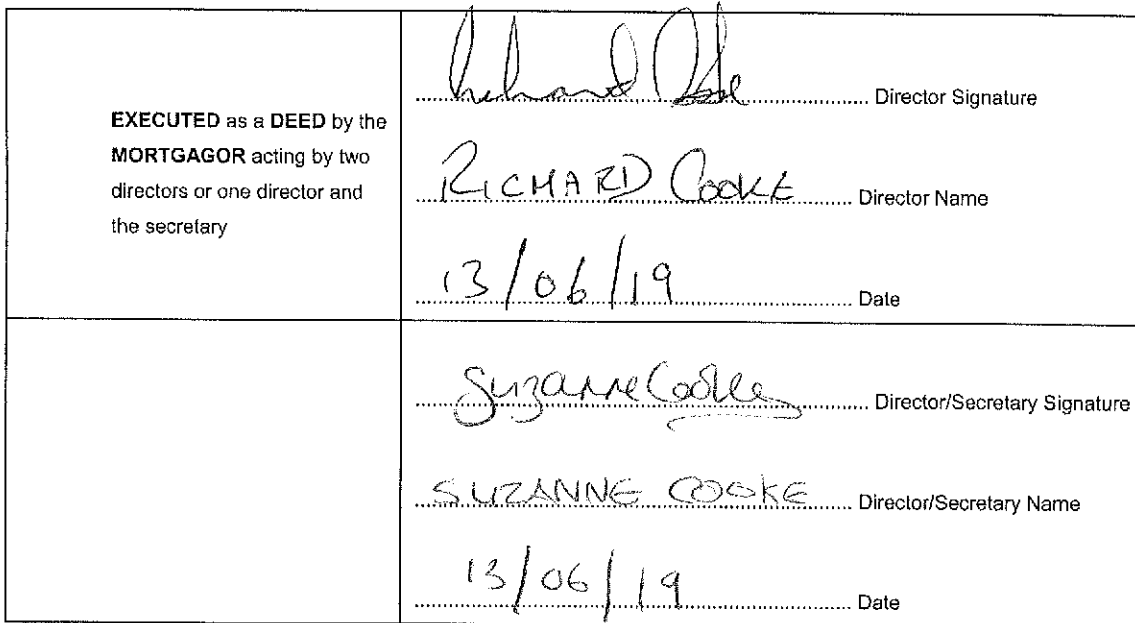 EXECUTED as a DEED by the
MORTGAGOR acting by two
directors or one director and
the secretary
Richard Cooke Director Signature
RICHARD COOKE Director Name
13/06/19 Date
Suzanne Cooke Director/Secretary Signature
SUZANNE COOKE Director/Secretary Name
13/06/19 Date